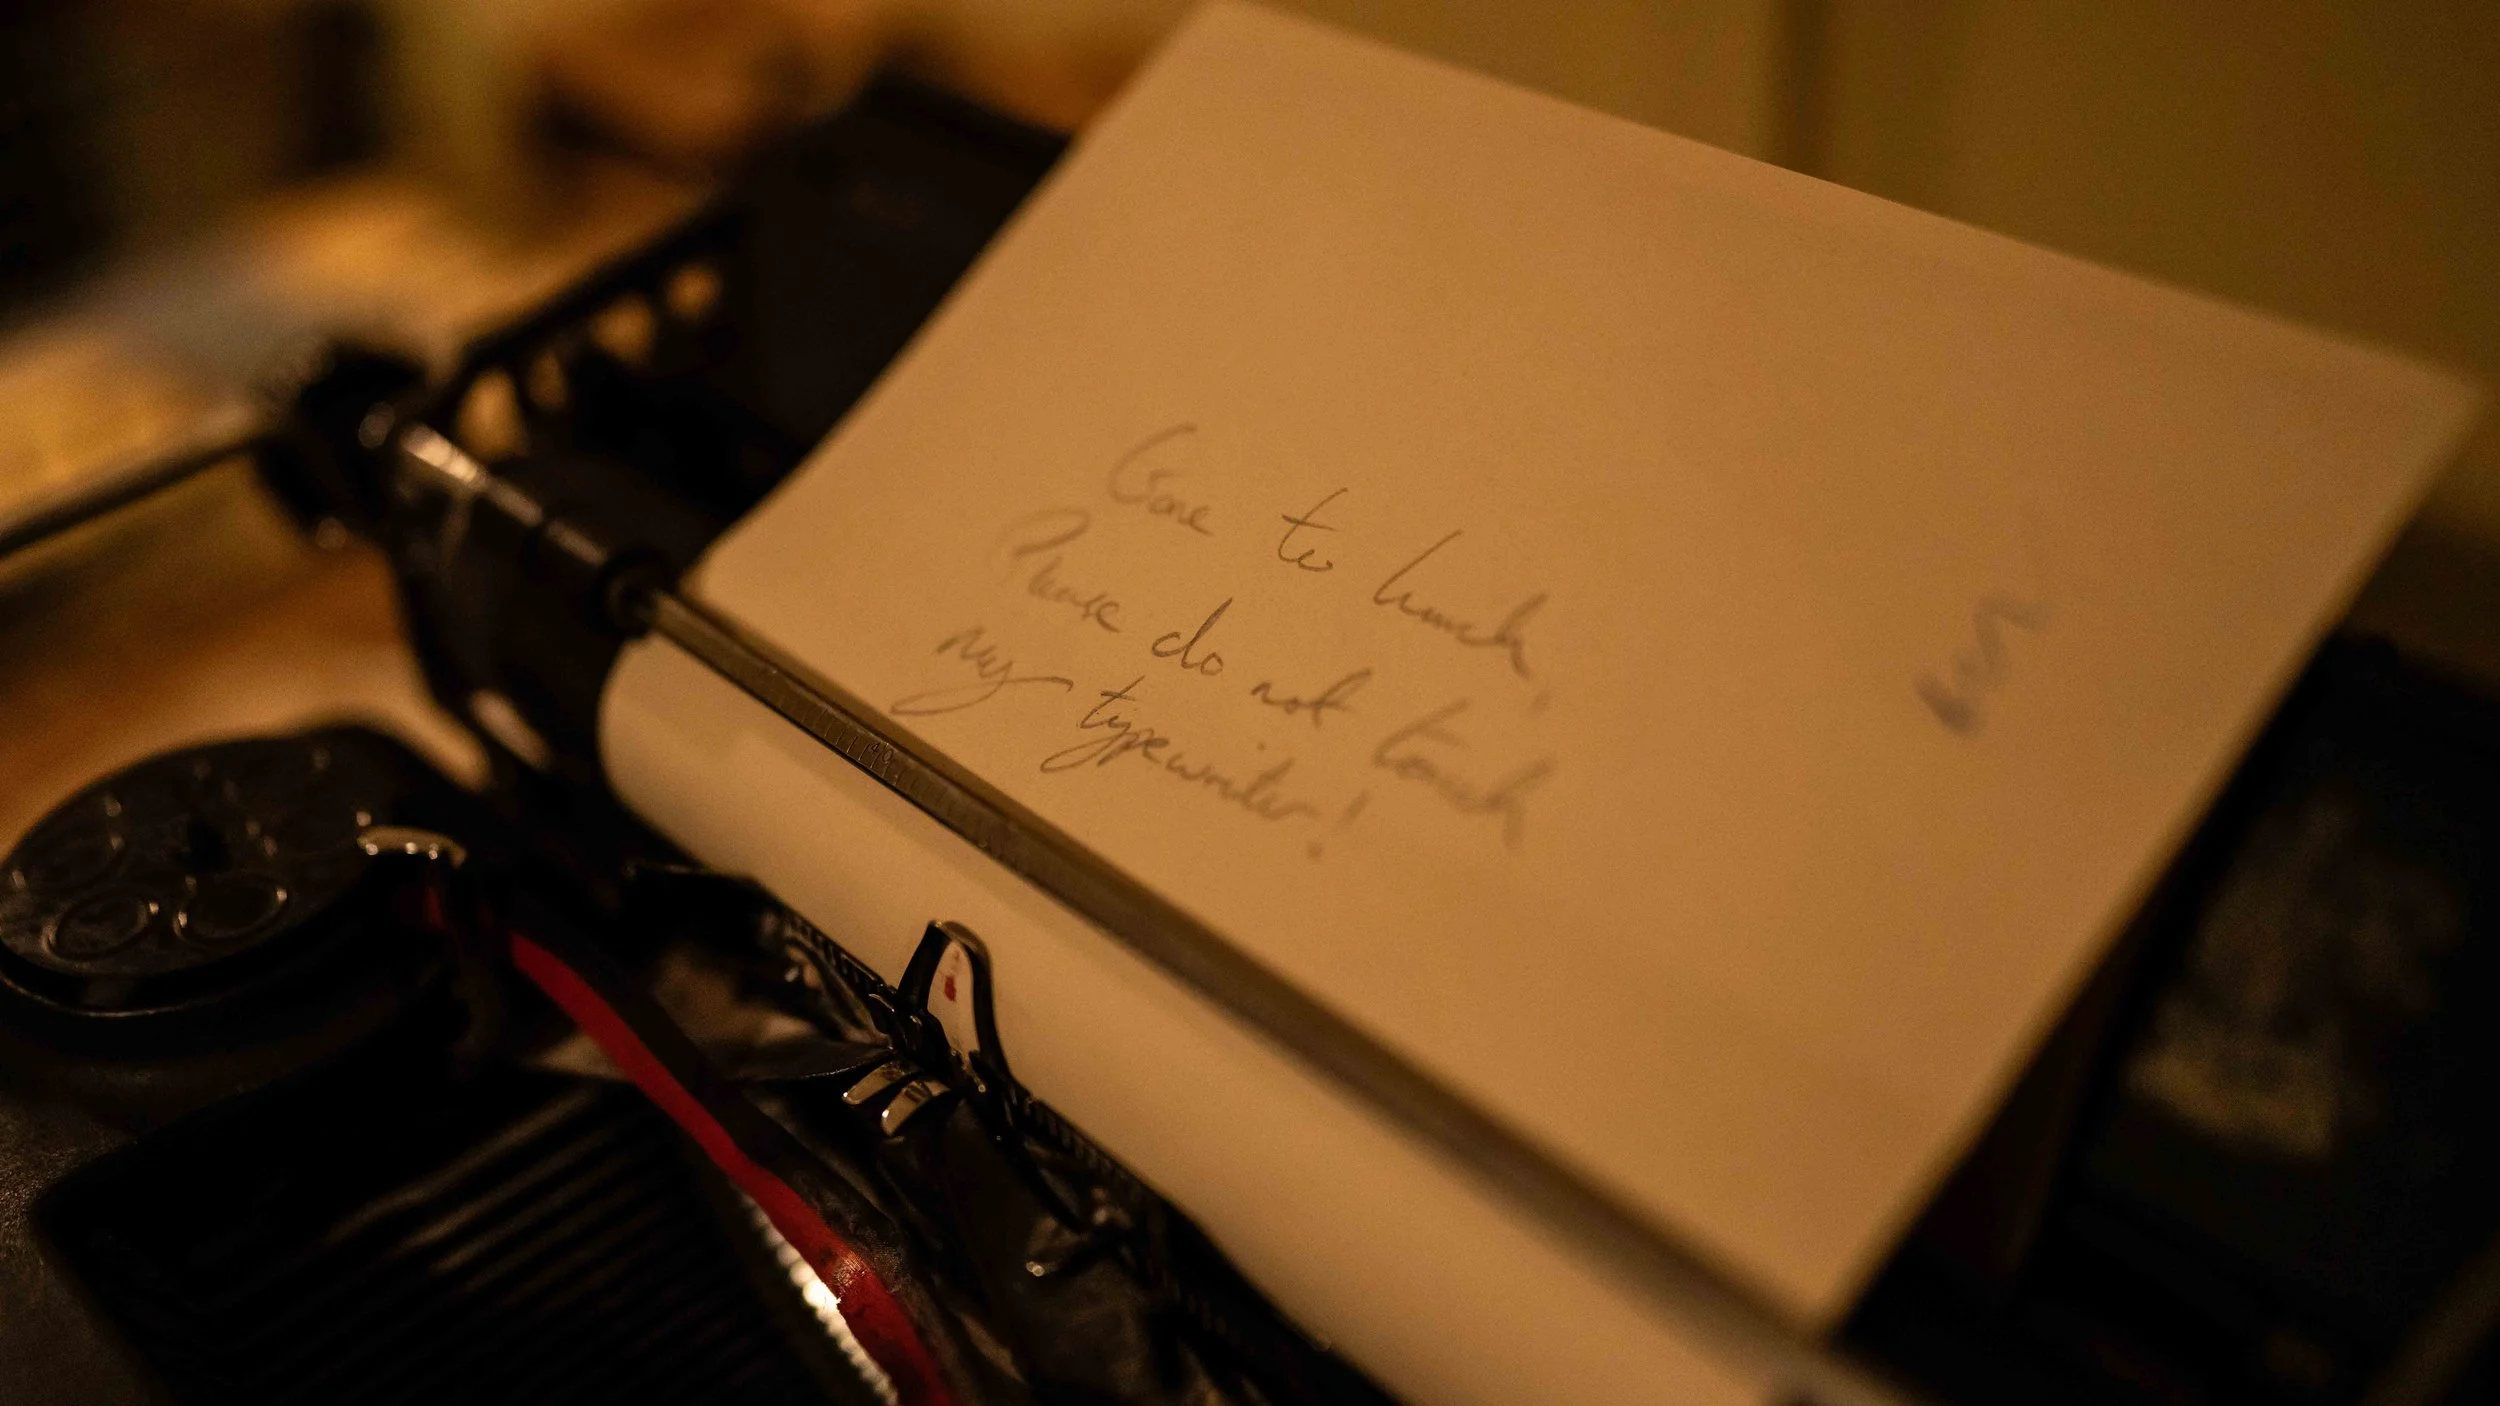 Gone to lunch.
Please do not touch
my typewriter!